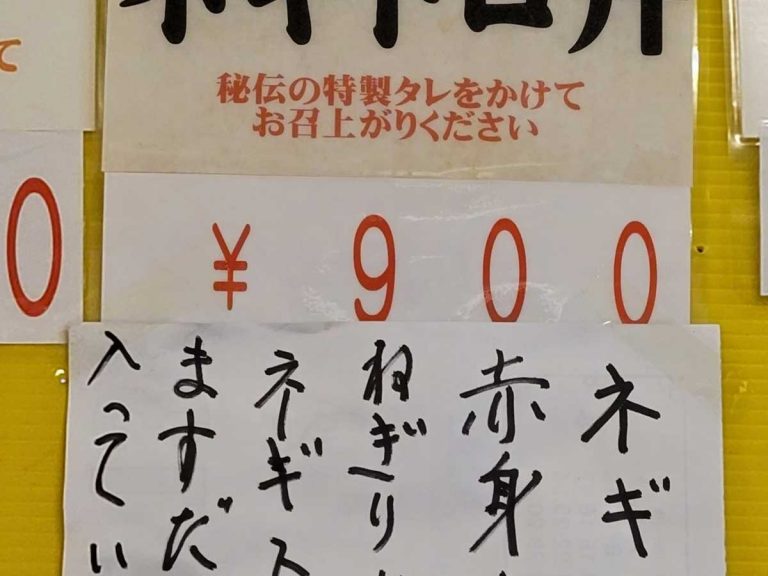 ネギトロ丼
秘伝の特製タレをかけて
お召上がりください
¥900
0
て
ネギ
赤身
ねぎーり
ネギス
ますだ
入ってい